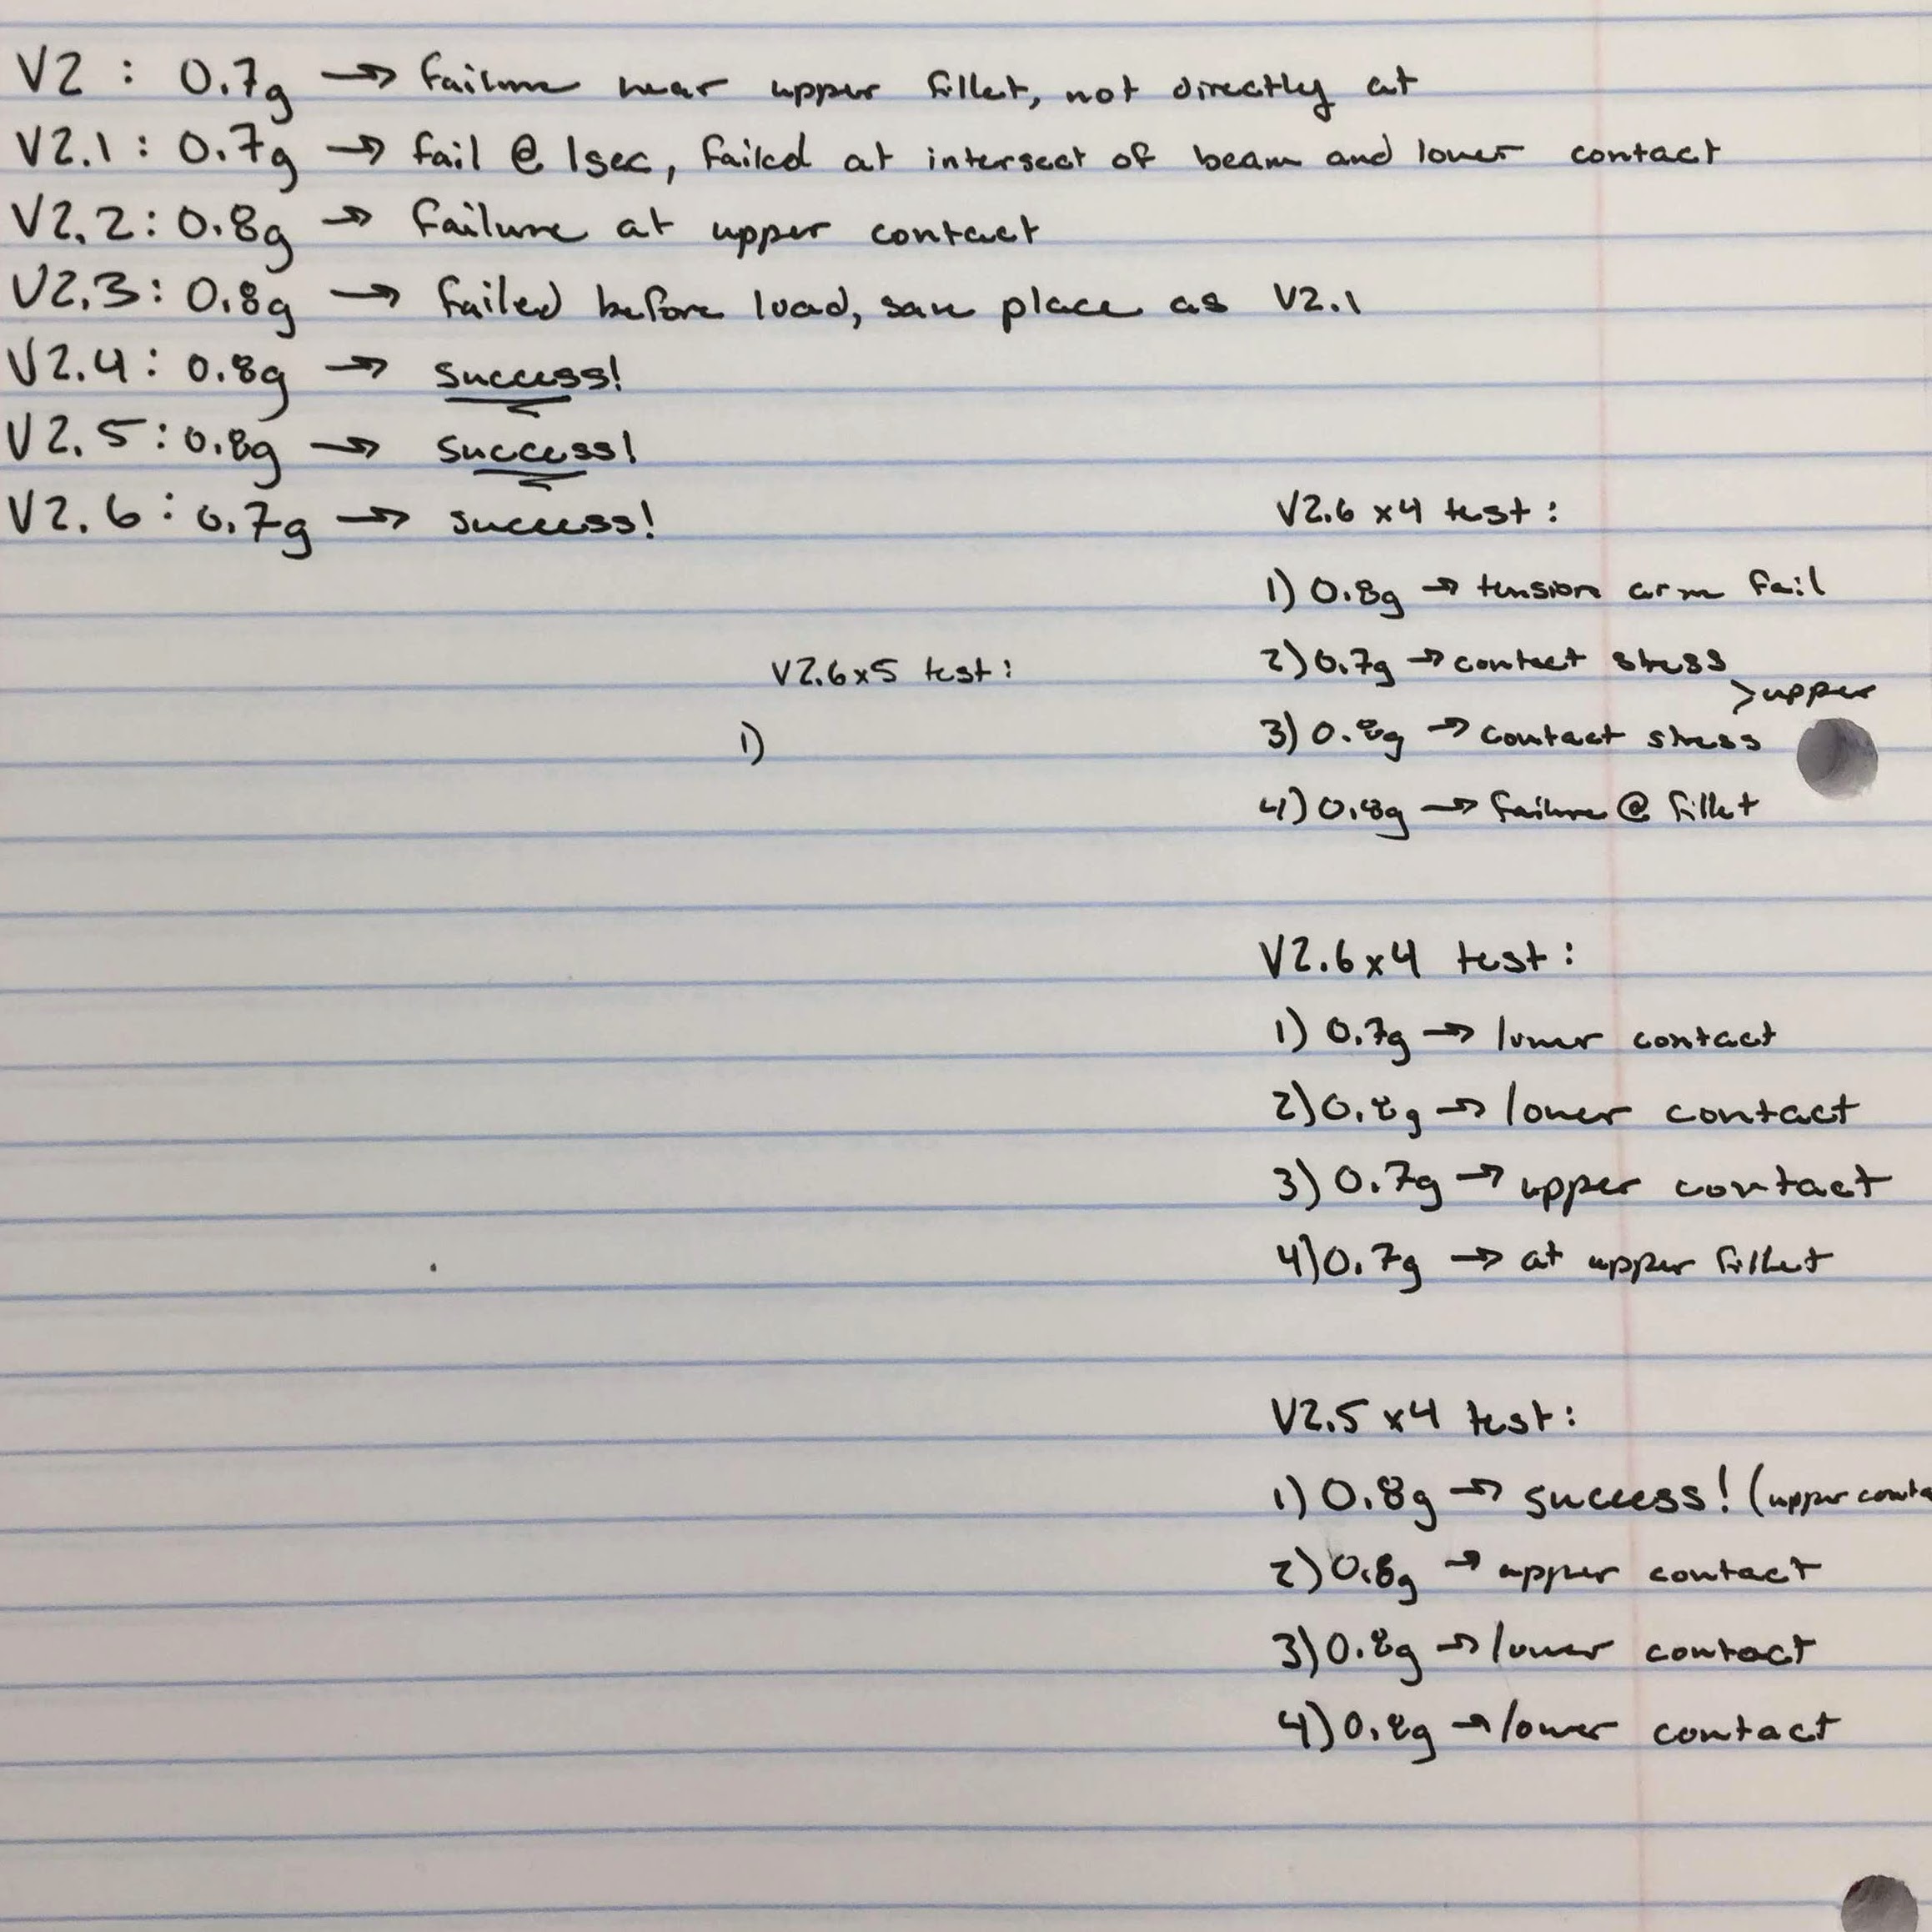 V2 : 0.7g → failure near upper fillet, not directly at
V2.1 : 0.7g → fail @ 1sec, failed at intersect of beam and lower contact
V2.2 : 0.8g → failure at upper contact
V2.3 : 0.8g → failed before load, same place as V2.1
V2.4 : 0.8g → success!
V2.5 : 0.8g → success!
V2.6 : 0.7g → success!
V2.6 x4 test :
1) 0.8g → tension arm fail
2) 0.7g → contact stress
>upper
3) 0.8g → contact stress
4) 0.8g → failure @ fillet
V2.6x5 test :
1)
V2.6x4 test :
1) 0.7g → lower contact
2) 0.8g → lower contact
3) 0.7g → upper contact
4) 0.7g → at upper fillet
V2.5 x4 test :
1) 0.8g → success! (upper conta
2) 0.8g → upper contact
3) 0.8g → lower contact
4) 0.8g → lower contact